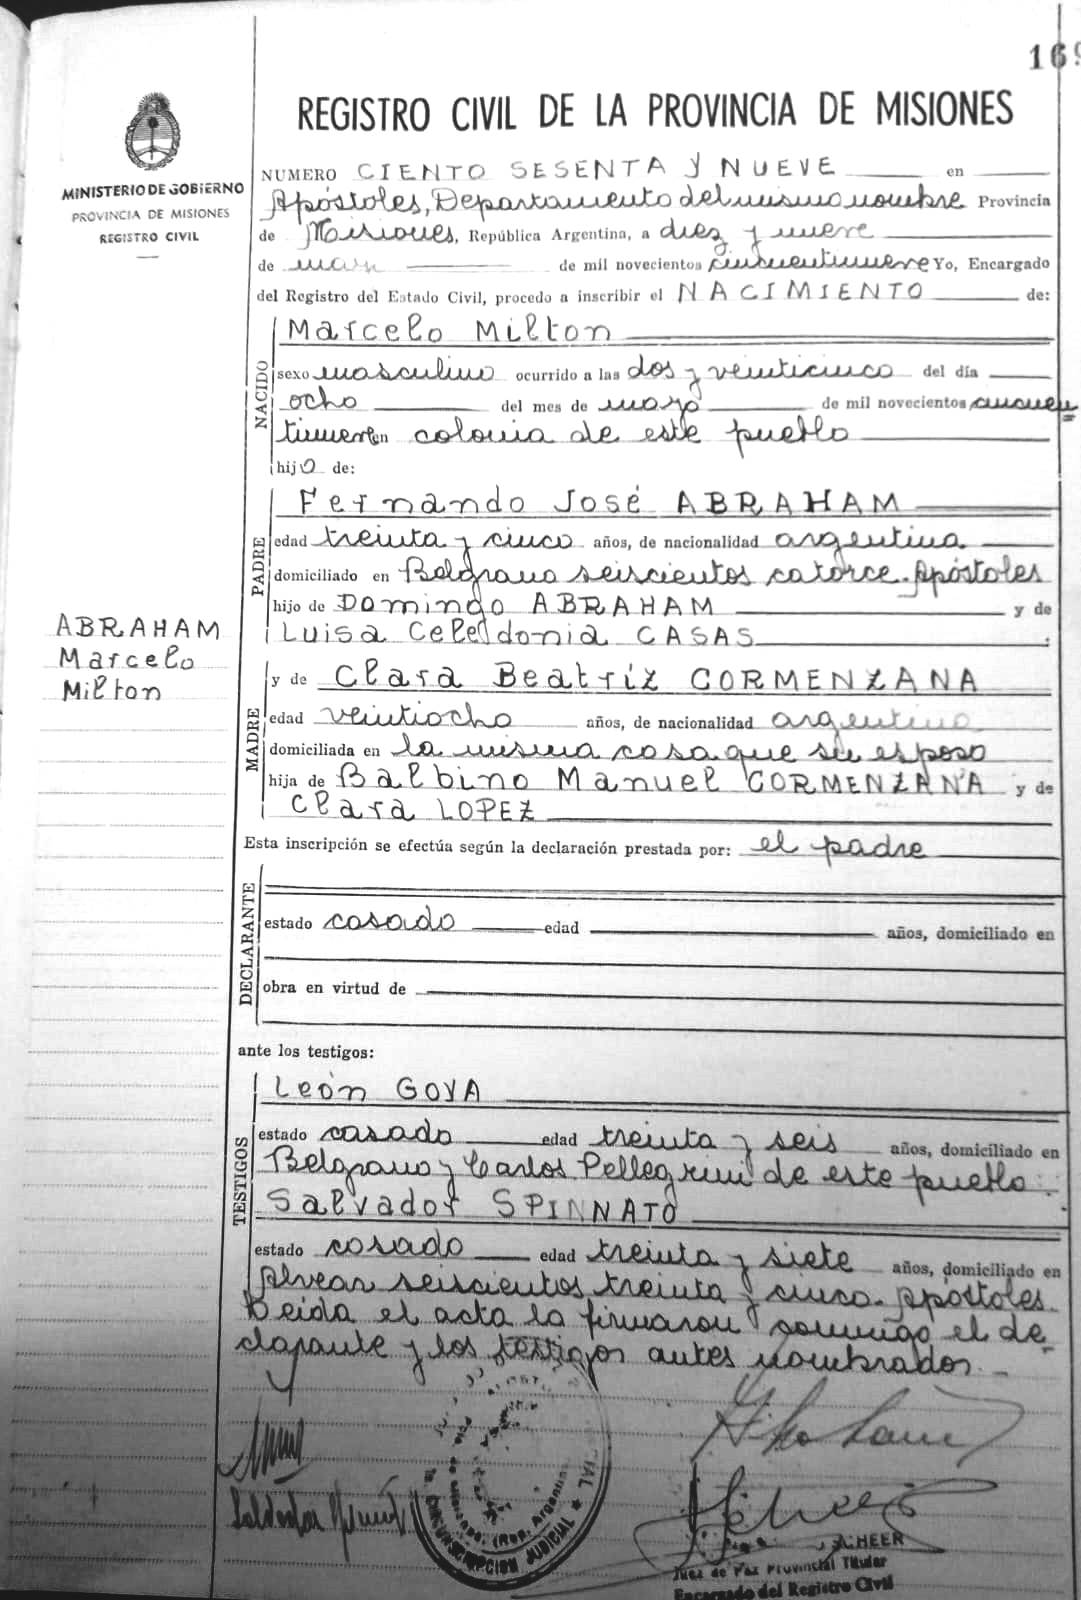 169
REGISTRO CIVIL DE LA PROVINCIA DE MISIONES
MINISTERIO DE GOBIERNO
PROVINCIA DE MISIONES
REGISTRO CIVIL
NUMERO CIENTO SESENTA Y NUEVE en
Apóstoles, Departamento del mismo nombre Provincia
de Misiones, República Argentina, a diez y nueve
de mayo de mil novecientos cincuentinueve Yo, Encargado
del Registro del Estado Civil, procedo a inscribir el NACIMIENTO de:
NACIDO
Marcelo Milton
sexo masculino ocurrido a las dos y veinticinco del día
ocho del mes de mayo de mil novecientos cincuen
tinueve en colonia de este pueblo
hijo de:
PADRE
Fernando José ABRAHAM
edad treinta y cinco años, de nacionalidad argentina
domiciliado en Belgrano seiscientos catorce. Apóstoles
hijo de Domingo ABRAHAM y de
Luisa Celedonia CASAS
ABRAHAM
Marcelo
Milton
MADRE
y de Clara Beatríz CORMENZANA
edad veintiocho años, de nacionalidad argentina
domiciliada en la misma casa que su esposo
hija de Balbino Manuel CORMENZANA y de
Clara LOPEZ
Esta inscripción se efectúa según la declaración prestada por: el padre
DECLARANTE
estado casado edad años, domiciliado en
obra en virtud de
ante los testigos:
TESTIGOS
León GOYA
estado casado edad treinta y seis años, domiciliado en
Belgrano y Carlos Pellegrini de este pueblo.
Salvador SPINNATO
estado casado edad treinta y siete años, domiciliado en
Alvear seiscientos treinta y cinco. Apóstoles.
Leida el acta la firmaron conmigo el de
clarante y los testigos antes nombrados.
CIRCUNSCRIPCION JUDICIAL
(Rep. Argentina)
SCHEER
Juez de Paz Provincial Titular
Encargado del Registro Civil